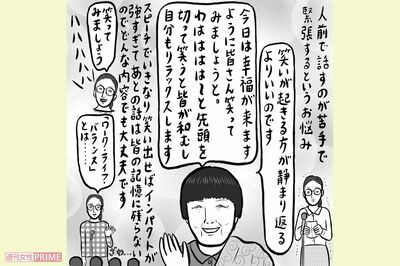 人前で話すのが苦手で
緊張するというお悩み
笑いが起きる方が静まり返る
よりいいのです
今日は幸福が来ます
ように皆さん笑って
みましょうと。
わはははは〜と先頭を
切って笑うと皆が和むし
自分もリラックスします
スピーチでいきなり笑い出せばインパクトが
強すぎてあとの話は皆の記憶に残らない
のでどんな内容でも大丈夫です
笑って
みましょう
「ワーク・ライフ
バランス」
とは……
ざわ…
週刊女性PRIME